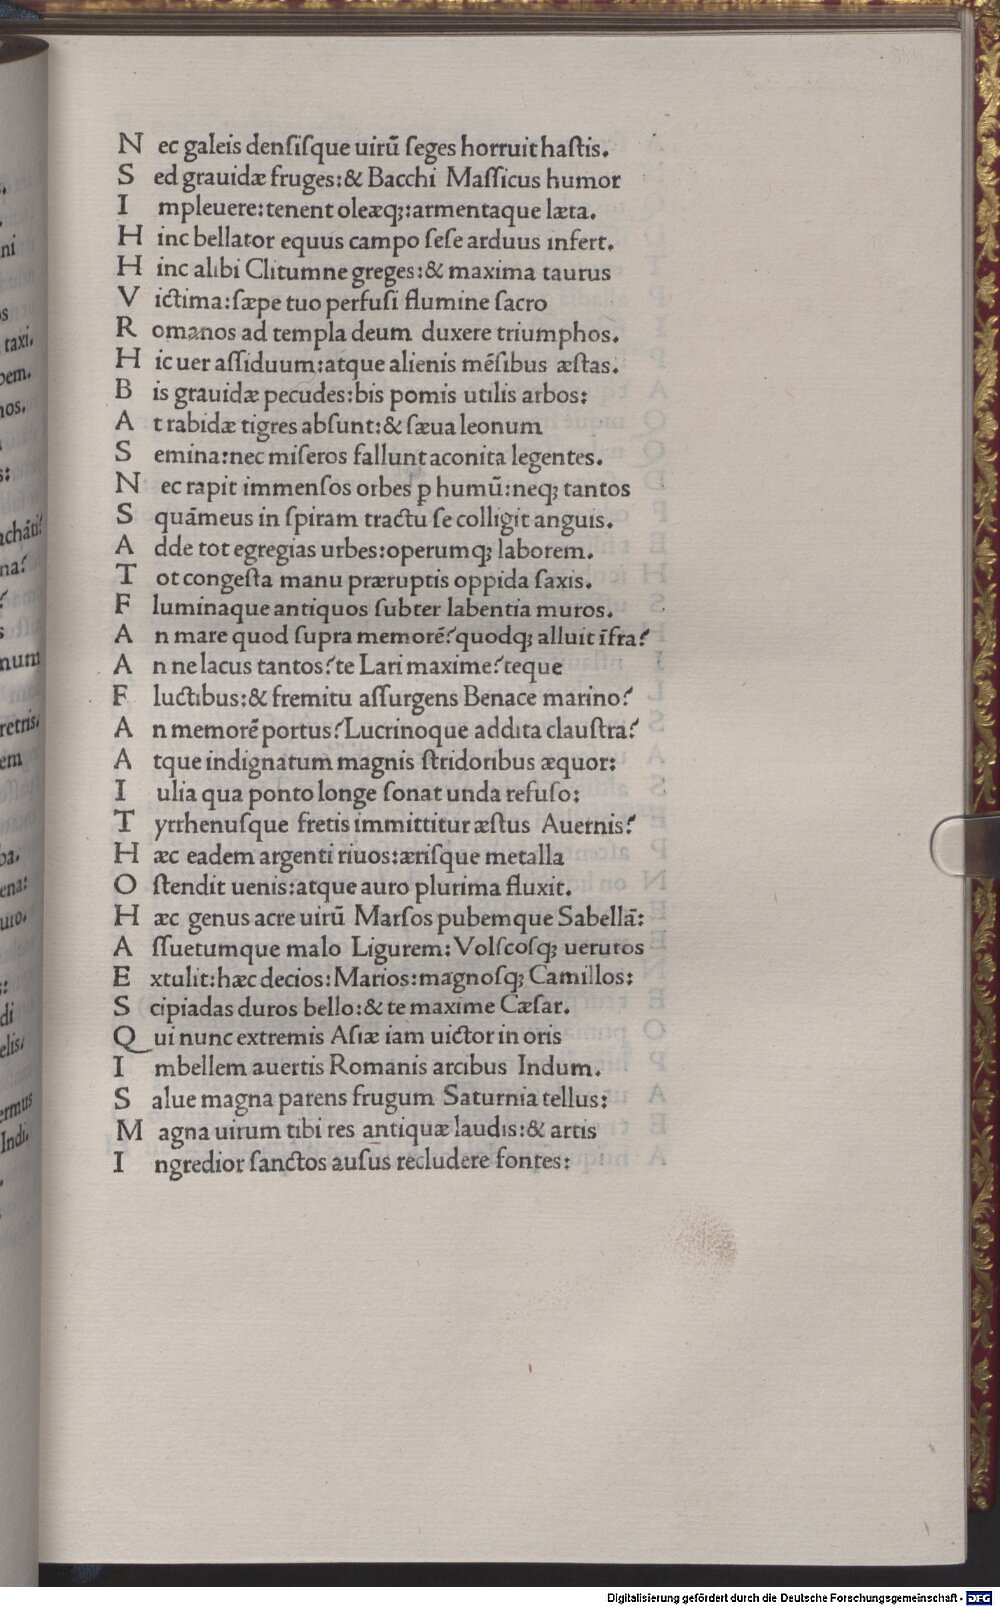 N ec galeis denſiſque uirū ſeges horruit haſtis.
S ed grauidæ fruges: & Bacchi Maſſicus humor
I mpleuere: tenent oleæqꝫ: armentaque læta.
H inc bellator equus campo ſeſe arduus infert.
H inc alibi Clitumne greges: & maxima taurus
V ictima: ſæpe tuo perfuſi flumine ſacro
R omanos ad templa deum duxere triumphos.
H ic uer aſſiduum: atque alienis mēſibus æſtas.
B is grauidæ pecudes: bis pomis utilis arbos:
A t rabidæ tigres abſunt: & ſæua leonum
S emina: nec miſeros fallunt aconita legentes.
N ec rapit immenſos orbes ꝑ humū: neqꝫ tantos
S quāmeus in ſpiram tractu ſe colligit anguis.
A dde tot egregias urbes: operumqꝫ laborem.
T ot congeſta manu præruptis oppida ſaxis.
F luminaque antiquos ſubter labentia muros.
A n mare quod ſupra memorē? quodqꝫ alluit īfra?
A n ne lacus tantos? te Lari maxime? teque
F luctibus: & fremitu aſſurgens Benace marino?
A n memorē portus? Lucrinoque addita clauſtra?
A tque indignatum magnis ſtridoribus æquor:
I ulia qua ponto longe ſonat unda refuſo:
T yrrhenuſque fretis immittitur æſtus Auernis?
H æc eadem argenti riuos: æriſque metalla
O ſtendit uenis: atque auro plurima fluxit.
H æc genus acre uirū Marſos pubemque Sabellā:
A ſſuetumque malo Ligurem: Volſcoſqꝫ uerutos
E xtulit: hæc decios: Marios: magnoſqꝫ Camillos:
S cipiadas duros bello: & te maxime Cæſar.
Q ui nunc extremis Aſiæ iam uictor in oris
I mbellem auertis Romanis arcibus Indum.
S alue magna parens frugum Saturnia tellus:
M agna uirum tibi res antiquæ laudis: & artis
I ngredior ſanctos auſus recludere fontes:
Digitalisierung gefördert durch die Deutsche Forschungsgemeinschaft - DFG